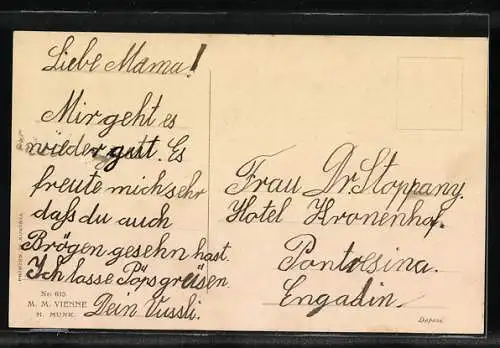 Liebe Mama!
Mir geht es
wieder gutt. Es
freute mich sehr
daß du auch
Brögen gesehn hast.
Ich lasse Pöps greisen
Dein Vussli.
Frau Dr Stoppany.
Hotel Kronenhof.
Pontresina.
Engadin.
No: 615
M. M. VIENNE
M. MUNK.
Déposé